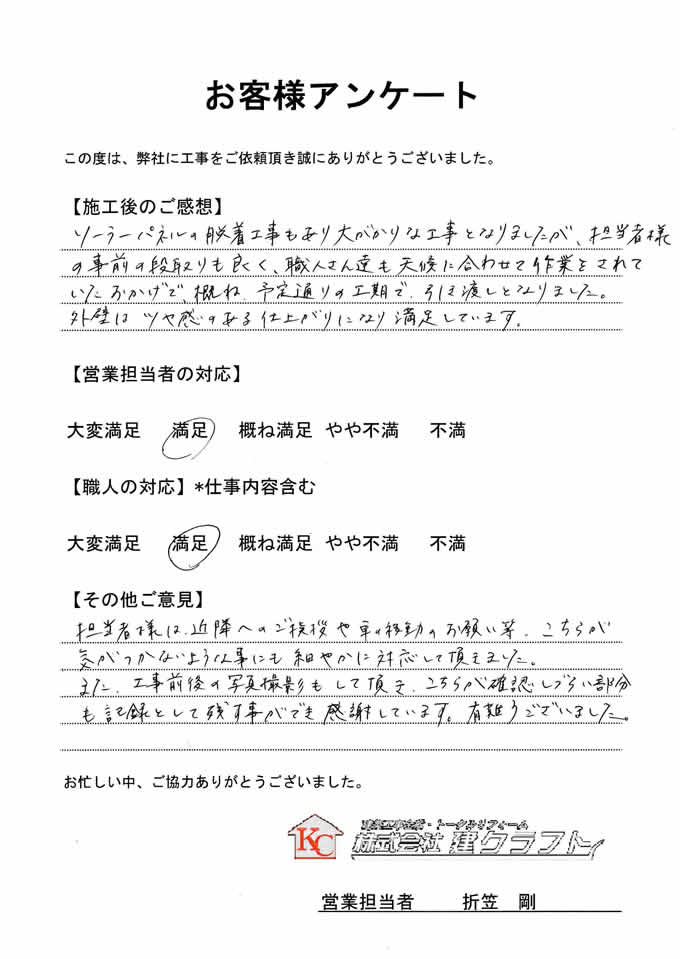 お客様アンケート
この度は、弊社に工事をご依頼頂き誠にありがとうございました。
【施工後のご感想】
ソーラーパネルの脱着工事もあり大がかりな工事となりましたが、担当者様
の事前の段取りも良く、職人さん達も天候に合わせて作業をされて
いたおかげで、概ね、予定通りの工期で、引き渡しとなりました。
外壁はツヤ感のある仕上がりになり満足しています。
【営業担当者の対応】
大変満足 満足 概ね満足 やや不満 不満
【職人の対応】*仕事内容含む
大変満足 満足 概ね満足 やや不満 不満
【その他ご意見】
担当者様は、近隣へのご挨拶や車の移動のお願い等、こちらが
気がつかないような事にも細やかに対応して頂きました。
また、工事前後の写真撮影もして頂き、こちらが確認しづらい部分
も記録として残す事ができ感謝しています。有難うございました。
お忙しい中、ご協力ありがとうございました。
KC
トータルリフォーム
株式会社 建クラフト
営業担当者 折笠 剛